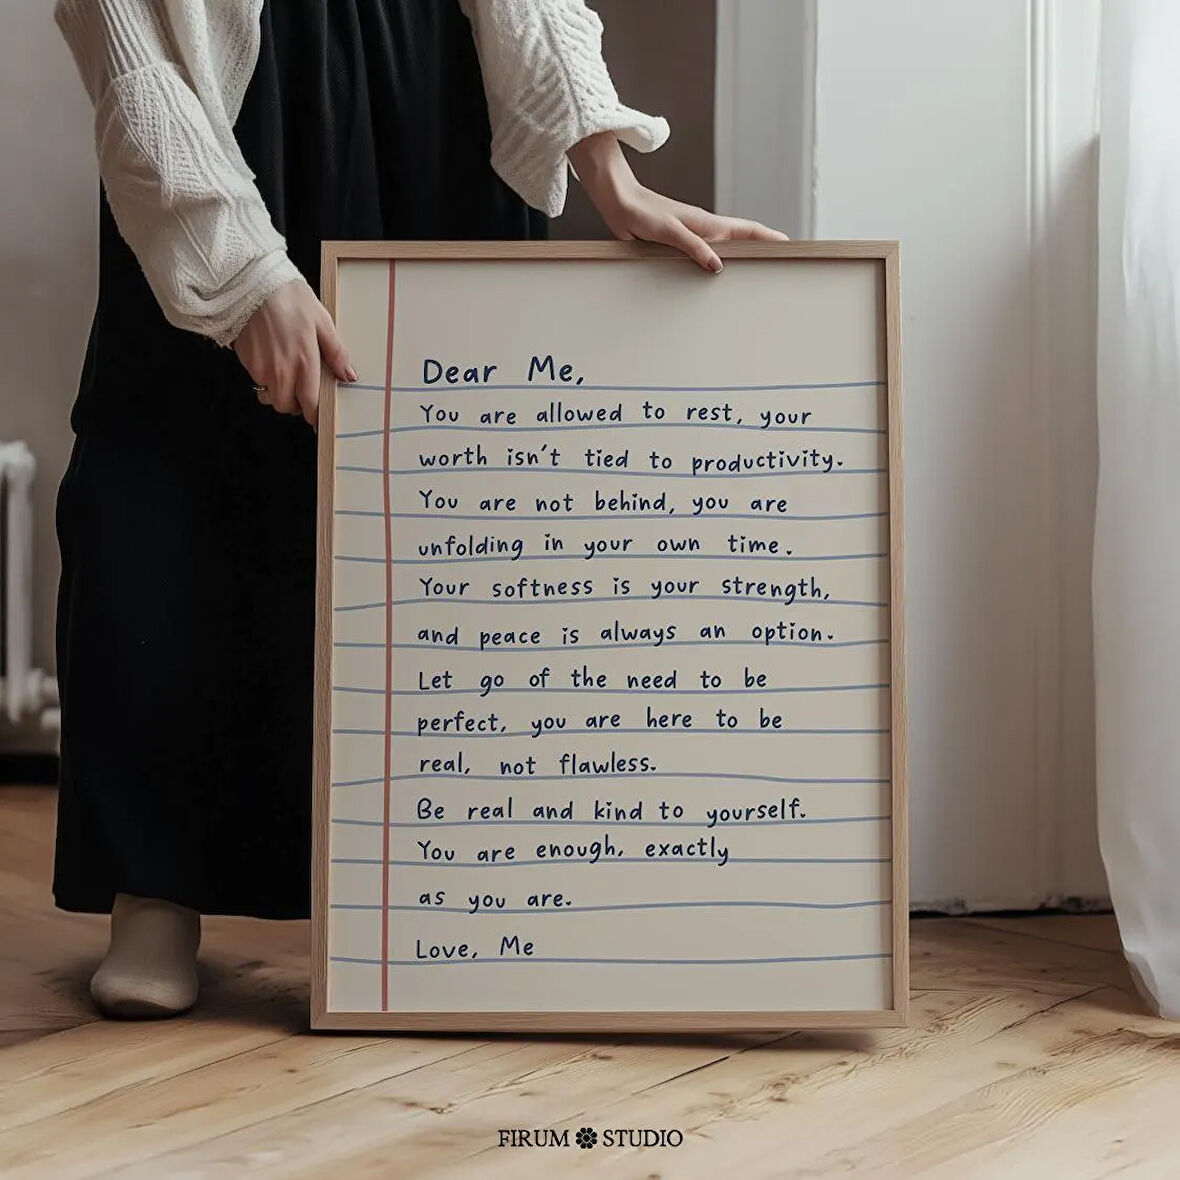 Dear Me,
You are allowed to rest, your
worth isn't tied to productivity.
You are not behind, you are
unfolding in your own time.
Your softness is your strength,
and peace is always an option.
Let go of the need to be
perfect, you are here to be
real, not flawless.
Be real and kind to yourself.
You are enough, exactly
as you are.
Love, Me
FIRUM STUDIO